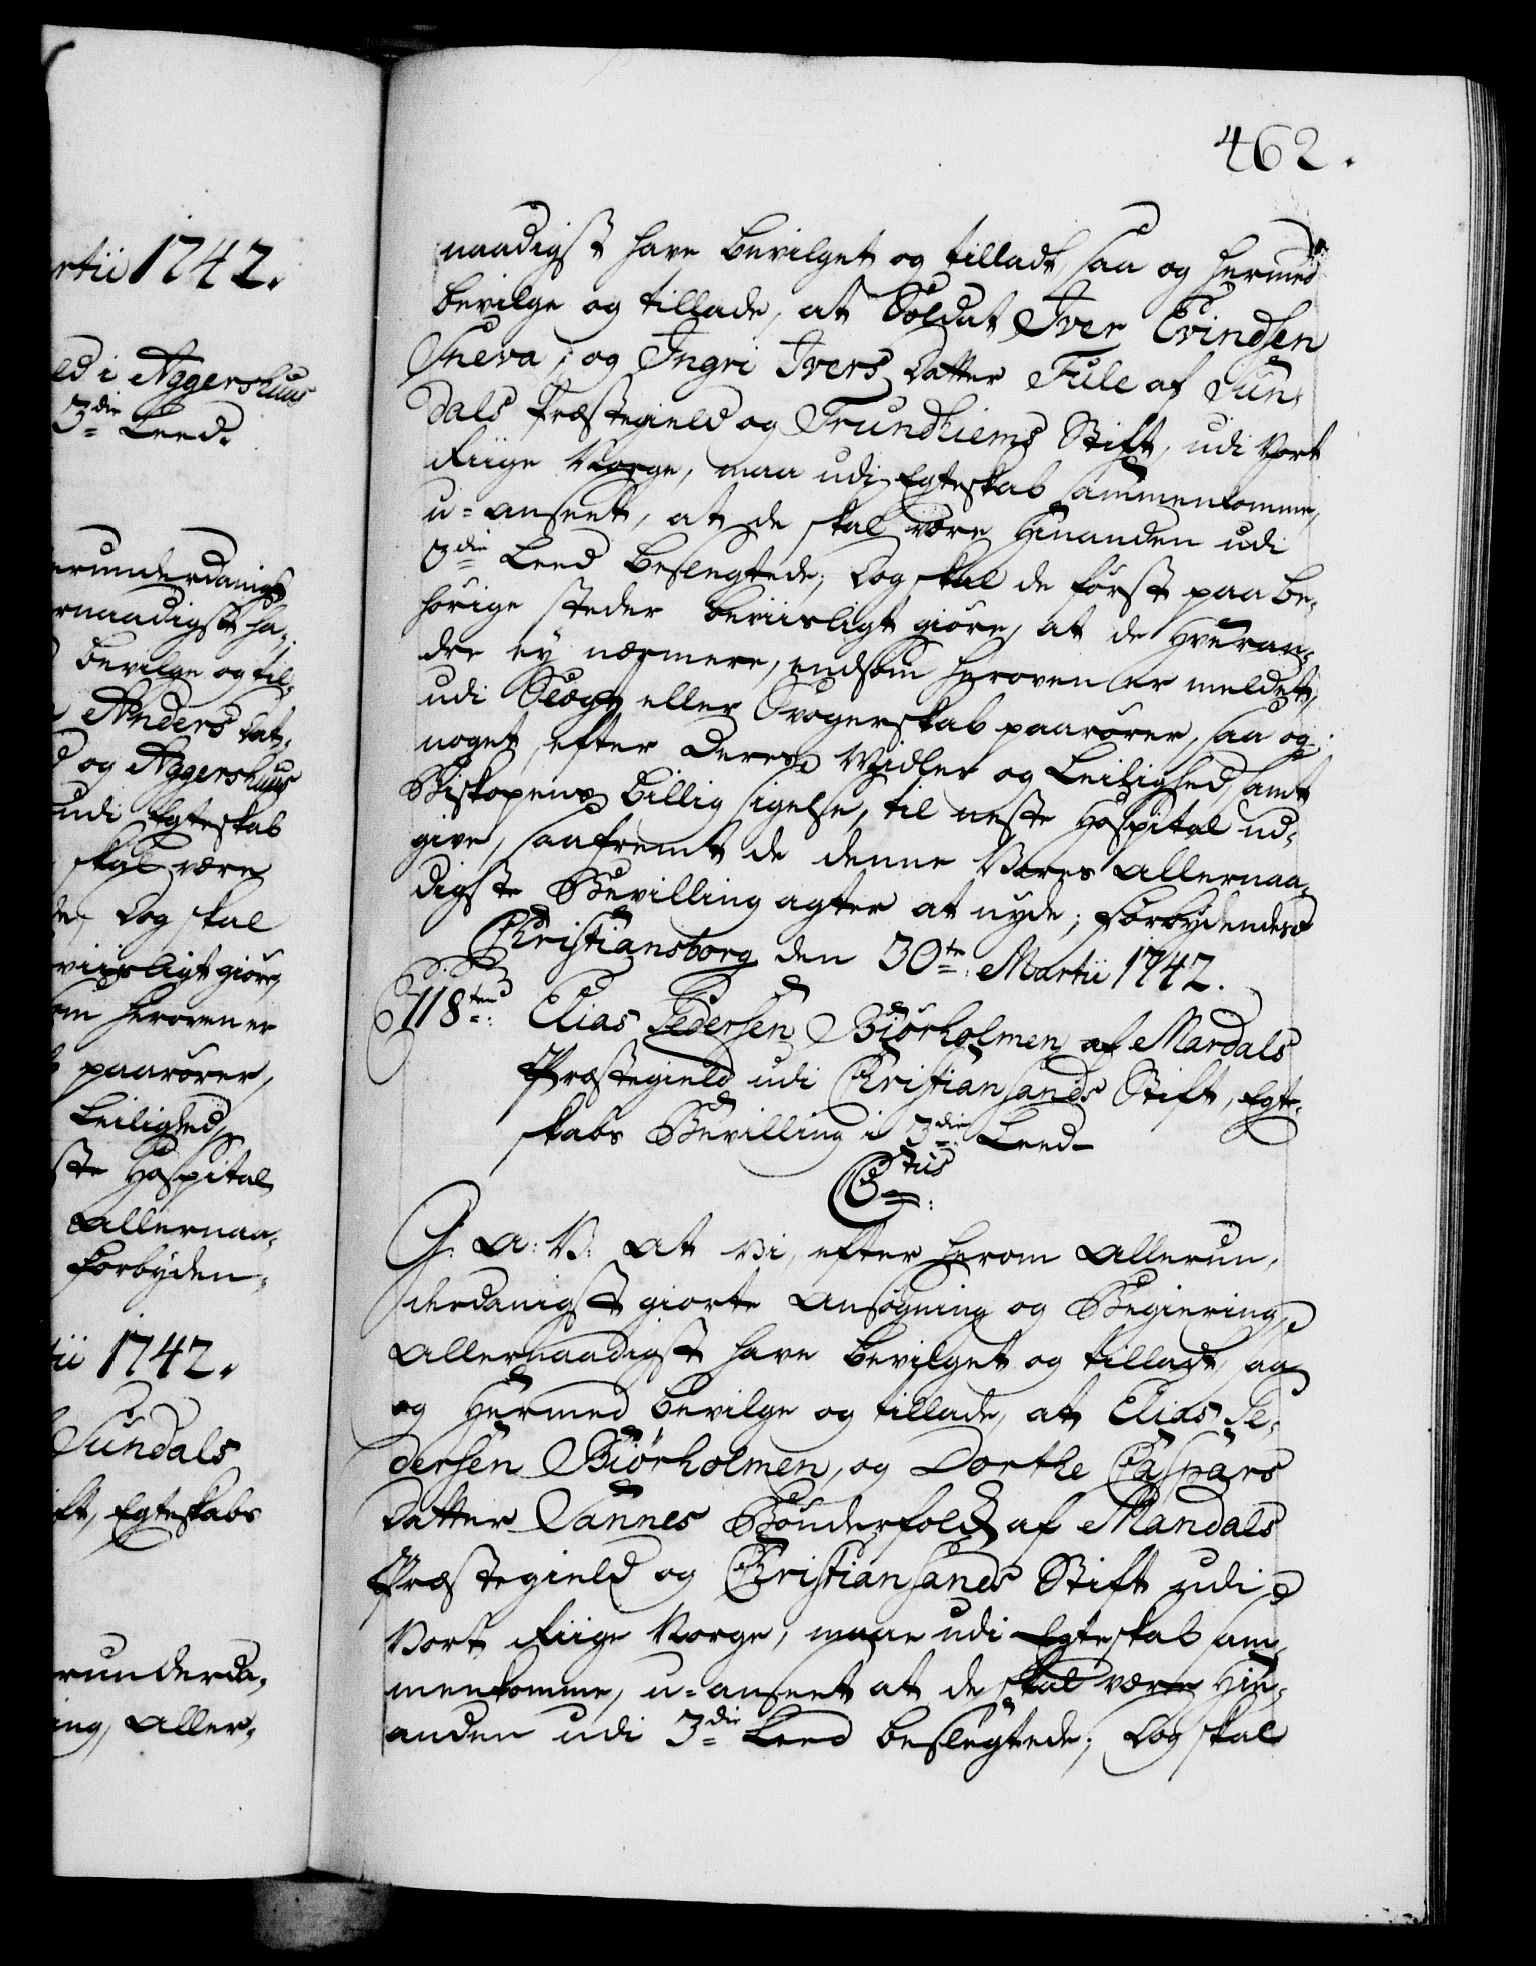 rtii 1742.
ed i Aggershuus
3die Leed.
erunderdanigst
rnaadigst ha-
bevilge og til-
Anders Dat-
d og Aggershuus
udi Egteskab
skal være
de, Dog skal
viisligt giöre,
om heroven er
paarörer,
Leilighed,
ste Hospital
Allernaa-
Forbyden-
tii 1742.
Sundals
ift, Egteskabs
runderda-
ing, Aller-
462.
naadigst have bevilget og tilladt, saa og hermed
bevilge og tillade, at Soldat Iver Evindsen
Sneva, og Ingri Ivers Datter Fule af Sun-
dals Præstegield og Trundhiems Stift, udi Vort
Riige Norge, maa udi Egteskab sammenkomme,
u-anseet, at de skal være Hinanden udi
3die Leed beslegtede; Dog skal de först paa be-
hörige steder beviisligt giöre, at de Hveran-
dre ey nærmere, end som heroven er meldet,
udi Slægt eller Svogerskab paarörer, saa og
noget, efter Deres Midler og Leilighed, samt
Biskopens billig sigelse, til neste Hospital ud-
give, saafremt de denne Vores Allernaa-
digste Bevilling agter at nyde; Forbydendes
Christiansborg den 30te: Martii 1742.
118ten: Elias Pedersen Biörholmen af Mandals
Præstegield udi Christiansands Stift, Egte-
skabs Bevilling i 3die Leed
C6tus:
G: A: V: At Vi, efter herom Allerun-
derdanigst giorte Ansögning og Begiering,
Allernaadigst have bevilget og tilladt, saa
og Hermed bevilge og tillade, at Elias Pe-
dersen Biörholmen, og Dorthe Caspars
Datter Sannes Bönderfolck af Mandals
Præstegield og Christiansands Stift udi
Vort Riige Norge, maae udi Egteskab sam-
menkomme, u-anseet at de skal være Hin-
anden udi 3die Leed beslegtede; Dog skal